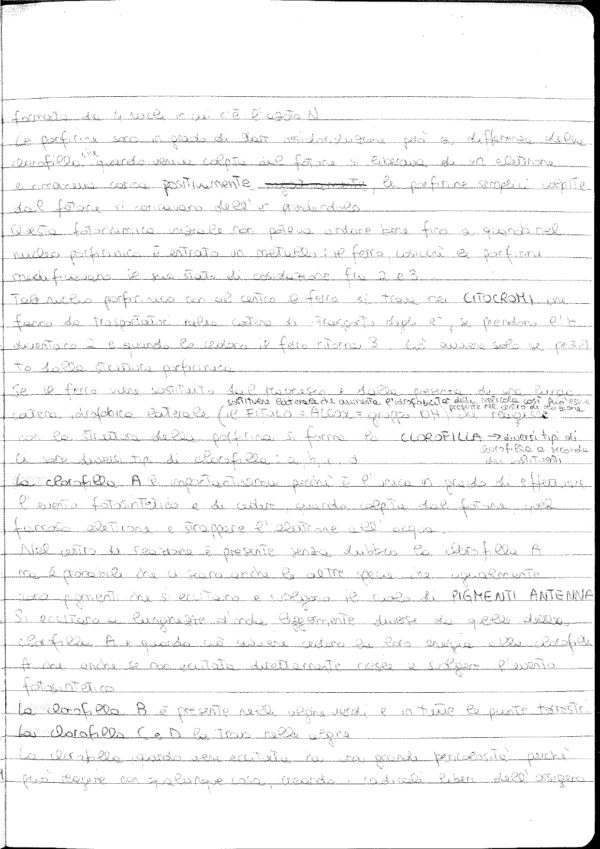 formata da 4 nuclei in cui c'è l'azoto N
Le porfirine sono in grado di dare ossidoriduzione però a differenza della
clorofilla che quando veniva colpita dal fotone si liberava di un elettrone
e rimaneva carica positivamente, le porfirine semplici colpite
dal fotone si caricavano dell'e⁻ prendendolo
Questa fotochimica iniziale non poteva andare bene fino a quando nel
nucleo porfirinico è entrato un metallo: il ferro, cosicché le porfirine
modificavano il suo stato di ossidazione fra 2 e 3
Tale nucleo porfirinico con al centro il ferro si trova nei CITOCROMI, che
fanno da trasportatori nella catena di trasporto degli e⁻, se prendono l'e⁻
diventano 2 e quando lo cedono il ferro ritorna 3 ciò avviene solo se
dalla struttura porfirinica
Se il ferro viene sostituito dal magnesio e dalla presenza di una lunga
sostituente laterale che aumenta l'idrofobicità della molecola così può essere
presente nel centro di reazione
catena idrofobica laterale (il FITOLO = ALCOOL = gruppo OH)
con la struttura della porfirina si forma la CLOROFILLA → diversi tipi di
clorofilla a seconda
dei sostituenti
Ci sono diversi tipi di clorofilla: a, b, c, d
La clorofilla A è importantissima perché è l'unica in grado di effettuare
l'evento fotosintetico e di cedere quando colpita dal fotone
elettrone e strappare l'elettrone all'acqua.
Nel centro di reazione è presente senza dubbio la clorofilla A
ma è probabile che ci siano anche le altre specie che ugualmente
sono pigmenti che si eccitano e svolgono il ruolo di PIGMENTI ANTENNA
Si eccitano a lunghezze d'onda leggermente diverse da quelle della
clorofilla A e quando ciò avviene cedono la loro energia alla clorofilla
A che anche se non eccitata direttamente riesce a svolgere l'evento
fotosintetico
La clorofilla B è presente nelle alghe verdi e in tutte le piante terrestri
La clorofilla C e D la trovo nelle alghe
La clorofilla quando viene eccitata ha una grande pericolosità perché
può reagire con qualunque cosa, creando i radicali liberi dell'ossigeno